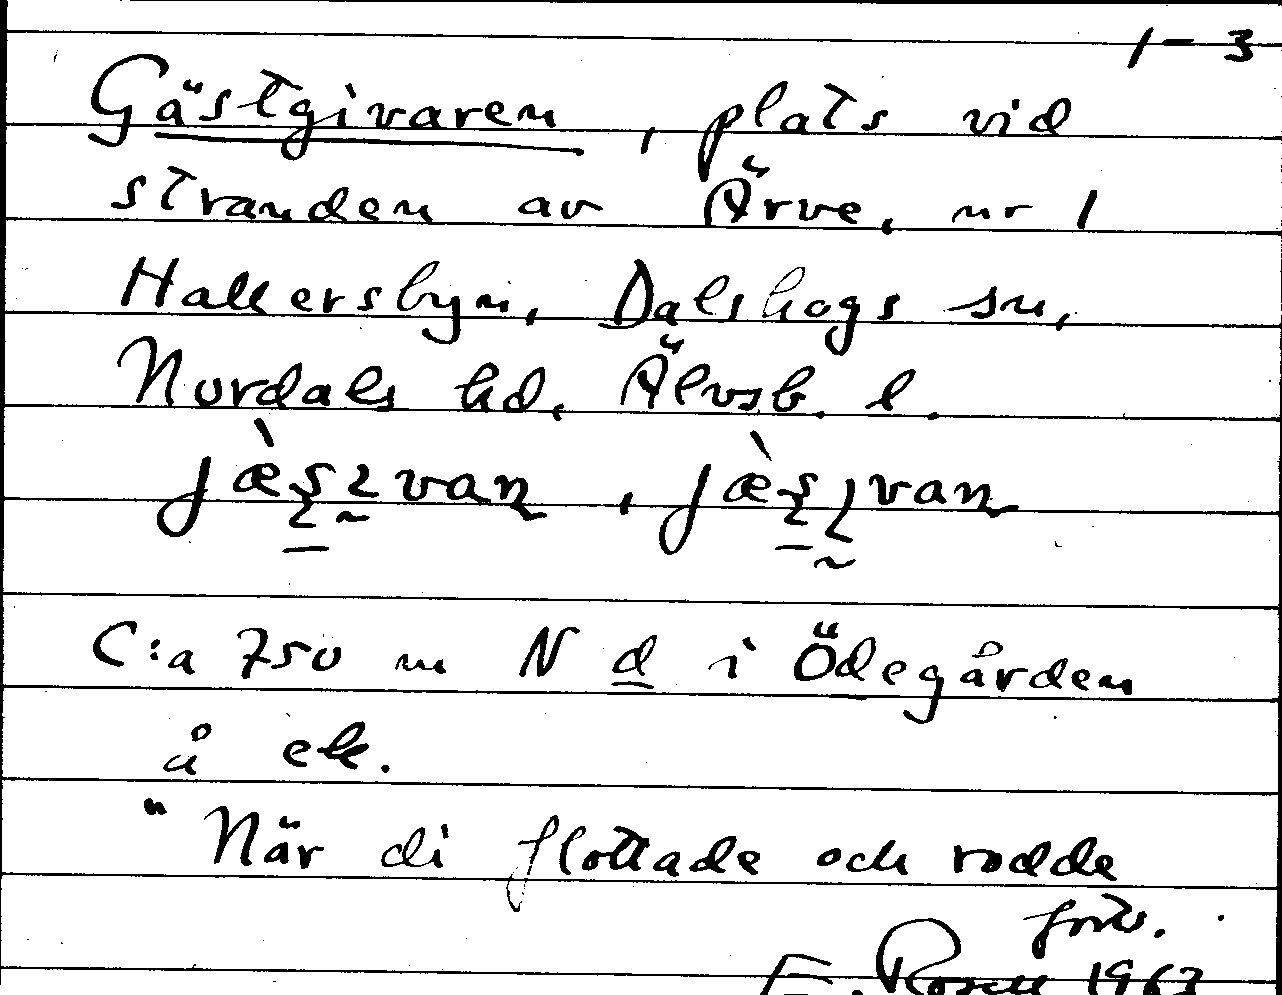 1-3
Gästgivaren, plats vid
stranden av Ärve, nr 1
Hakersbyn, Dalskogs sn,
Nordals hd, Älvsb. l.
C:a 750 m N d i Ödegården
å ek.
"När di flottade och rodde
forts.
E. Rosell 1963